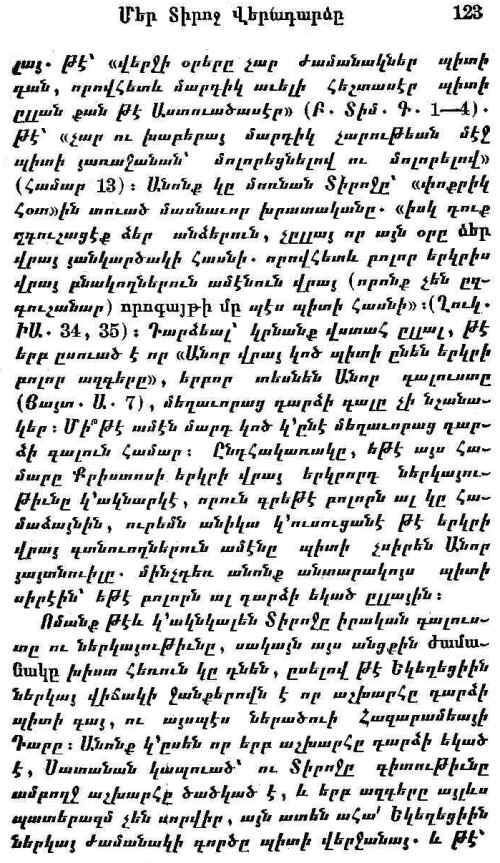 Մեր Տիրոջ Վերադարձը 123
լայ. թէ՝ «վերջի օրերը չար ժամանակներ պիտի
գան, որովհետև մարդիկ աւելի հեշտասէր պիտի
ըլլան քան թէ Աստուածասէր» (Բ. Տիմ. Գ. 1—4).
թէ՝ «չար ու խաբեբայ մարդիկ չարութեան մէջ
պիտի յառաջանան՝ մոլորեցնելով ու մոլորելով»
(Համար 13)։ Անոնք կը մոռնան Տիրոջը՝ «փոքրիկ
Հօտ»ին տուած մասնաւոր խրատականը. «իսկ դուք
զգուշացէք ձեր անձերուն, չըլլայ որ այն օրը ձեր
վրայ յանկարծակի հասնի. որովհետև բոլոր երկրիս
վրայ բնակողներուն ամէնուն վրայ (որոնք չեն ըզ-
գուշանար) որոգայթի մը պէս պիտի հասնի»։(Ղուկ.
ԻԱ. 34, 35)։ Դարձեալ՝ կրնանք վստահ ըլլալ, թէ
երբ ըսուած է որ «Անոր վրայ կոծ պիտի ընեն երկրի
բոլոր ազգերը», երբոր տեսնեն Անոր գալուստը
(Յայտ. Ա. 7), մեղաւորաց դարձի գալը չի նշանա-
կեր։ Մի՞թէ ամէն մարդ կոծ կ՚ընէ մեղաւորաց դար-
ձի գալուն համար։ Ընդհակառակը, եթէ այս հա-
մարը Քրիստոսի երկրի վրայ երկրորդ ներկայու-
թիւնը կ՚ակնարկէ, որուն գրեթէ բոլորն ալ կը հա-
մաձայնին, ուրեմն անիկա կ՚ուսուցանէ թէ երկրի
վրայ գտնուողներուն ամէնը պիտի չսիրեն Անոր
յայտնուիլը. մինչդեռ անոնք անտարակոյս պիտի
սիրէին՝ եթէ բոլորն ալ դարձի եկած ըլլային։
Ոմանք թէև կ՚ակնկալեն Տիրոջը իրական գալուս-
տը ու ներկայութիւնը, սակայն այս անցքին ժամա-
նակը խիստ հեռուն կը դնեն, ըսելով թէ Եկեղեցիին
ներկայ վիճակի ջանքերովն է որ աշխարհը դարձի
պիտի գայ, ու այսպէս ներածուի Հազարամեայի
Դարը։ Անոնք կ՚ըսեն որ երբ աշխարհը դարձի եկած
է, Սատանան կապուած՝ ու Տիրոջը գիտութիւնը
ամբողջ աշխարհը ծածկած է, և երբ ազգերը այլևս
պատերազմ չեն սորվիր, այն ատեն ահա՛ Եկեղեցիին
ներկայ ժամանակի գործը պիտի վերջանայ. և թէ՝